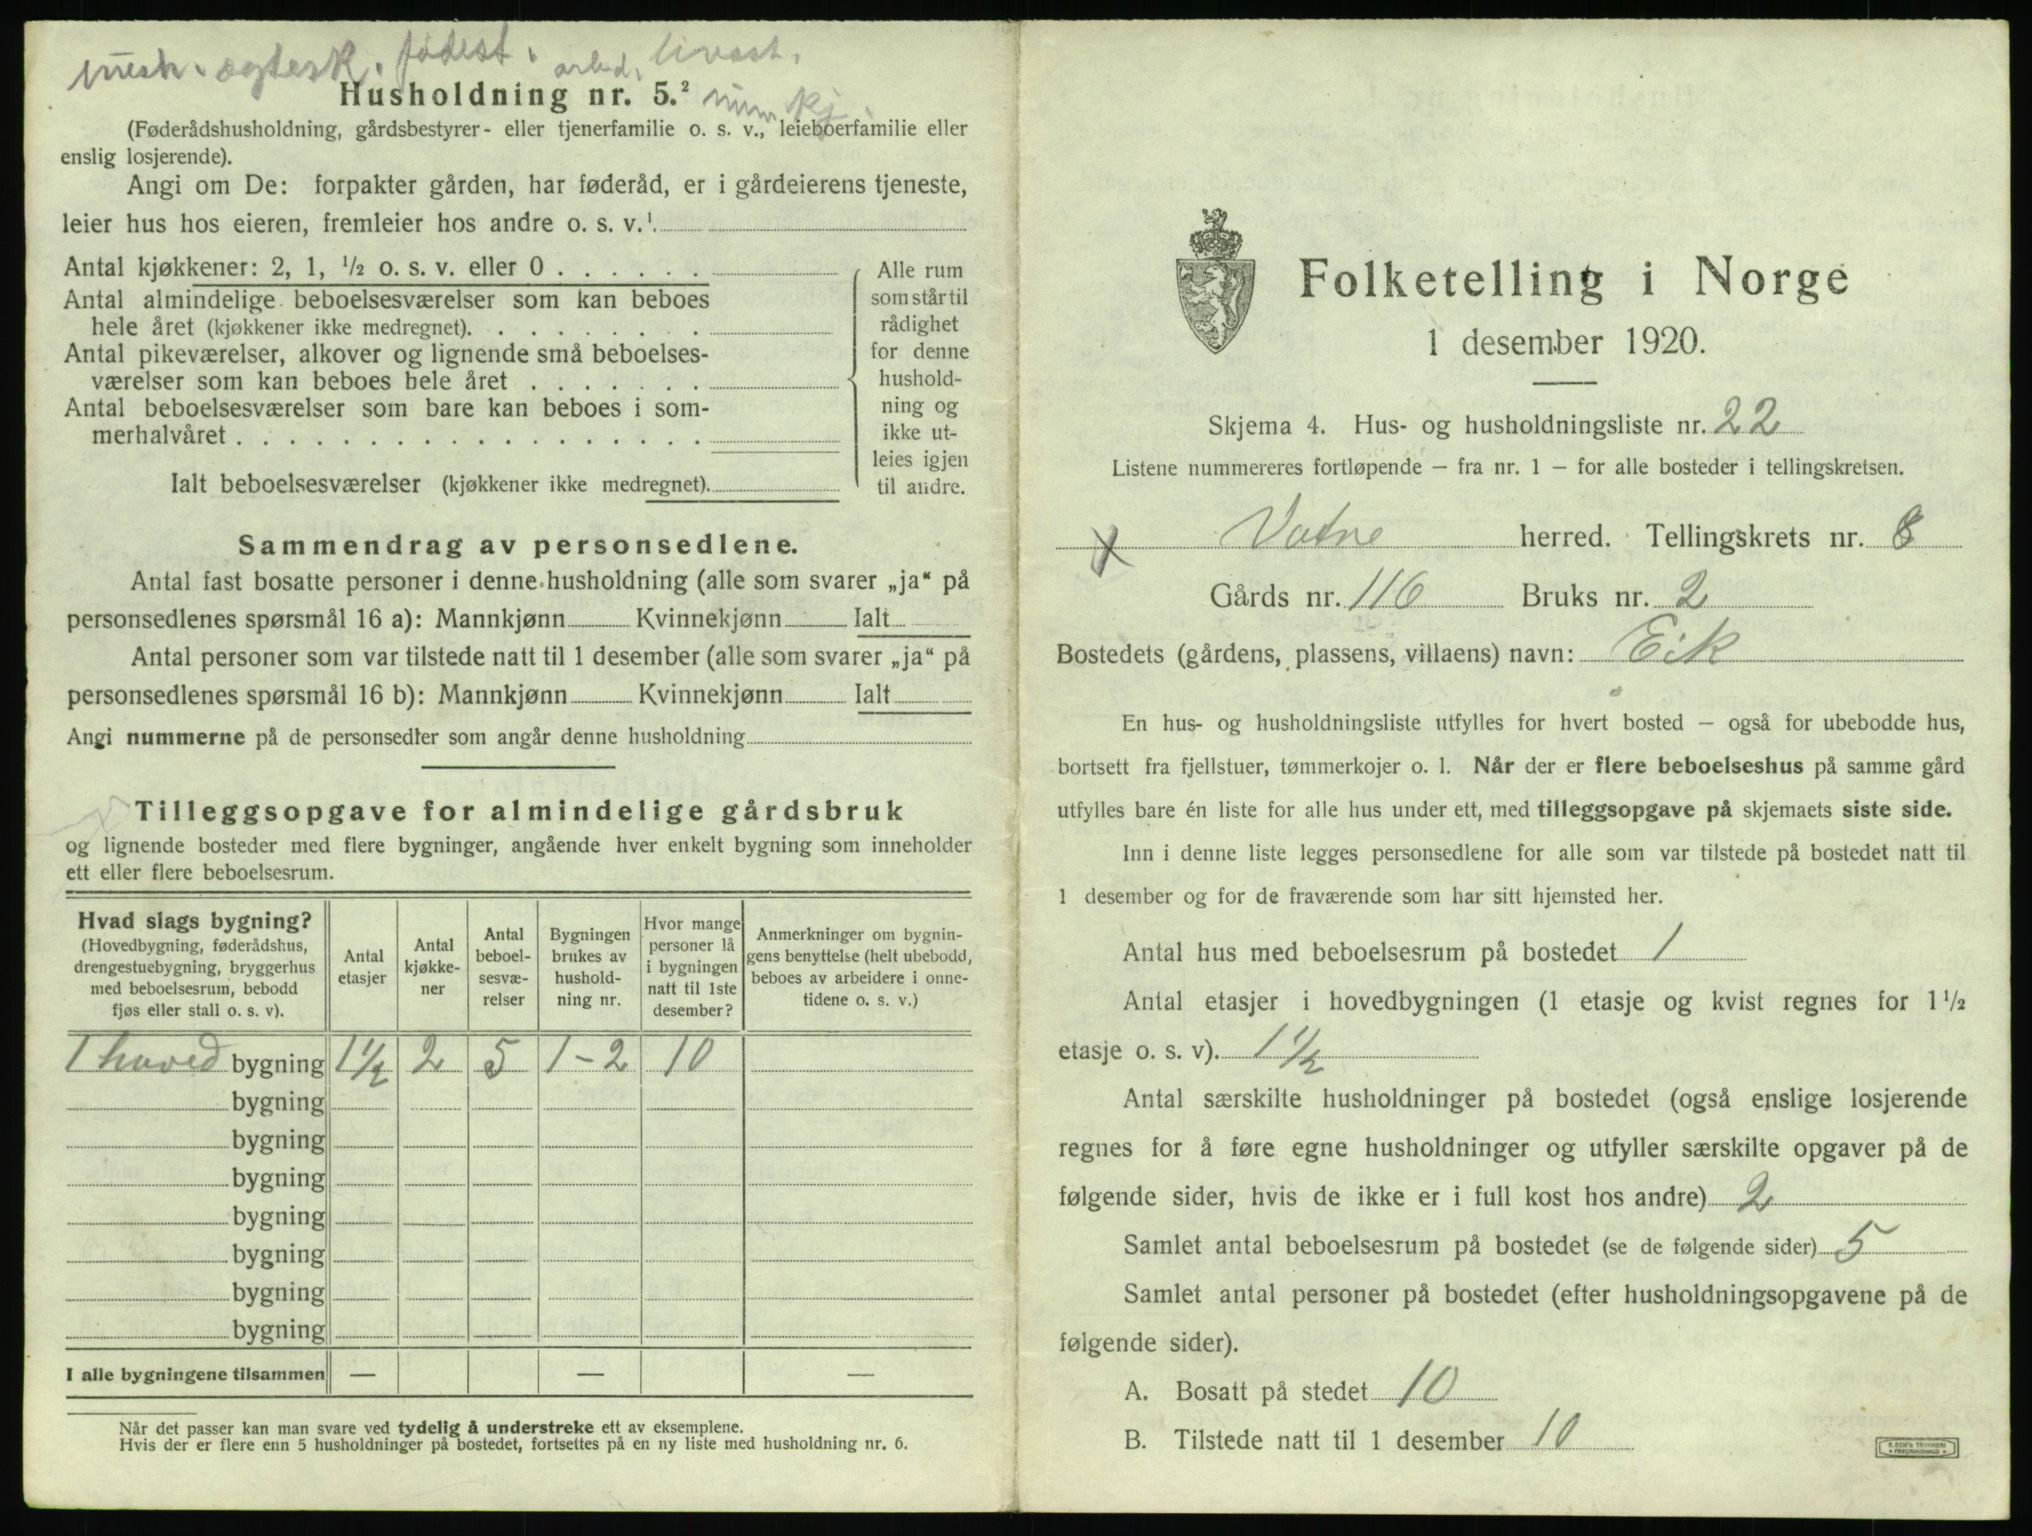 ægtesk. fødest. arbed. livsst.
Husholdning nr. 5.² num kj.
(Føderådshusholdning, gårdsbestyrer- eller tjenerfamilie o. s. v., leieboerfamilie eller
enslig losjerende).
Angi om De: forpakter gården, har føderåd, er i gårdeierens tjeneste,
leier hus hos eieren, fremleier hos andre o. s. v.¹
Antal kjøkkener: 2, 1, ½ o. s. v. eller 0 . . . . . .
Antal almindelige beboelsesværelser som kan beboes
hele året (kjøkkener ikke medregnet). . . . . . . . .
Antal pikeværelser, alkover og lignende små beboelses-
værelser som kan beboes hele året . . . . . . .
Antal beboelsesværelser som bare kan beboes i som-
merhalvåret . . . . . . . . . . . . . . . . . .
Ialt beboelsesværelser (kjøkkener ikke medregnet).
Alle rum
som står til
rådighet
for denne
hushold-
ning og
ikke ut-
leies igjen
til andre.
Sammendrag av personsedlene.
Antal fast bosatte personer i denne husholdning (alle som svarer „ja“ på
personsedlenes spørsmål 16 a): Mannkjønn Kvinnekjønn Ialt
Antal personer som var tilstede natt til 1 desember (alle som svarer „ja“ på
personsedlenes spørsmål 16 b): Mannkjønn Kvinnekjønn Ialt
Angi nummerne på de personsedler som angår denne husholdning
Tilleggsopgave for almindelige gårdsbruk
og lignende bosteder med flere bygninger, angående hver enkelt bygning som inneholder
ett eller flere beboelsesrum.
Hvad slags bygning?
(Hovedbygning, føderådshus,
drengestuebygning, bryggerhus
med beboelsesrum, bebodd
fjøs eller stall o. s. v).
Antal
etasjer
Antal
kjøkke-
ner
Antal
beboel-
sesvæ-
relser
Bygningen
brukes av
hushold-
ning nr.
Hvor mange
personer lå
i bygningen
natt til 1ste
desember?
Anmerkninger om bygnin-
gens benyttelse (helt ubebodd,
beboes av arbeidere i onne-
tidene o. s. v.)
1 hoved bygning 1 ½ 2 5 1 - 2 10
bygning
bygning
bygning
bygning
bygning
bygning
bygning
I alle bygningene tilsammen — — —
Når det passer kan man svare ved tydelig å understreke ett av eksemplene.
Hvis der er flere enn 5 husholdninger på bostedet, fortsettes på en ny liste med husholdning nr. 6.
Folketelling i Norge
1 desember 1920.
Skjema 4. Hus- og husholdningsliste nr. 22
Listene nummereres fortløpende – fra nr. 1 – for alle bosteder i tellingskretsen.
x Vatne herred. Tellingskrets nr. 8
Gårds nr. 116 Bruks nr. 2
Bostedets (gårdens, plassens, villaens) navn: Eik
En hus- og husholdningsliste utfylles for hvert bosted – også for ubebodde hus,
bortsett fra fjellstuer, tømmerkojer o. l. Når der er flere beboelseshus på samme gård
utfylles bare én liste for alle hus under ett, med tilleggsopgave på skjemaets siste side.
Inn i denne liste legges personsedlene for alle som var tilstede på bostedet natt til
1 desember og for de fraværende som har sitt hjemsted her.
Antal hus med beboelsesrum på bostedet 1
Antal etasjer i hovedbygningen (1 etasje og kvist regnes for 1½
etasje o. s. v). 1 ½
Antal særskilte husholdninger på bostedet (også enslige losjerende
regnes for å føre egne husholdninger og utfyller særskilte opgaver på de
følgende sider, hvis de ikke er i full kost hos andre) 2
Samlet antal beboelsesrum på bostedet (se de følgende sider) 5
Samlet antal personer på bostedet (efter husholdningsopgavene på de
følgende sider).
A. Bosatt på stedet 10
B. Tilstede natt til 1 desember 10